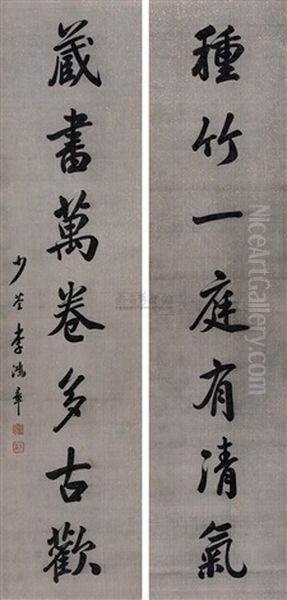 種竹一庭有清氣
藏書萬卷多古歡
少荃李鴻章
NiceArtGallery.com